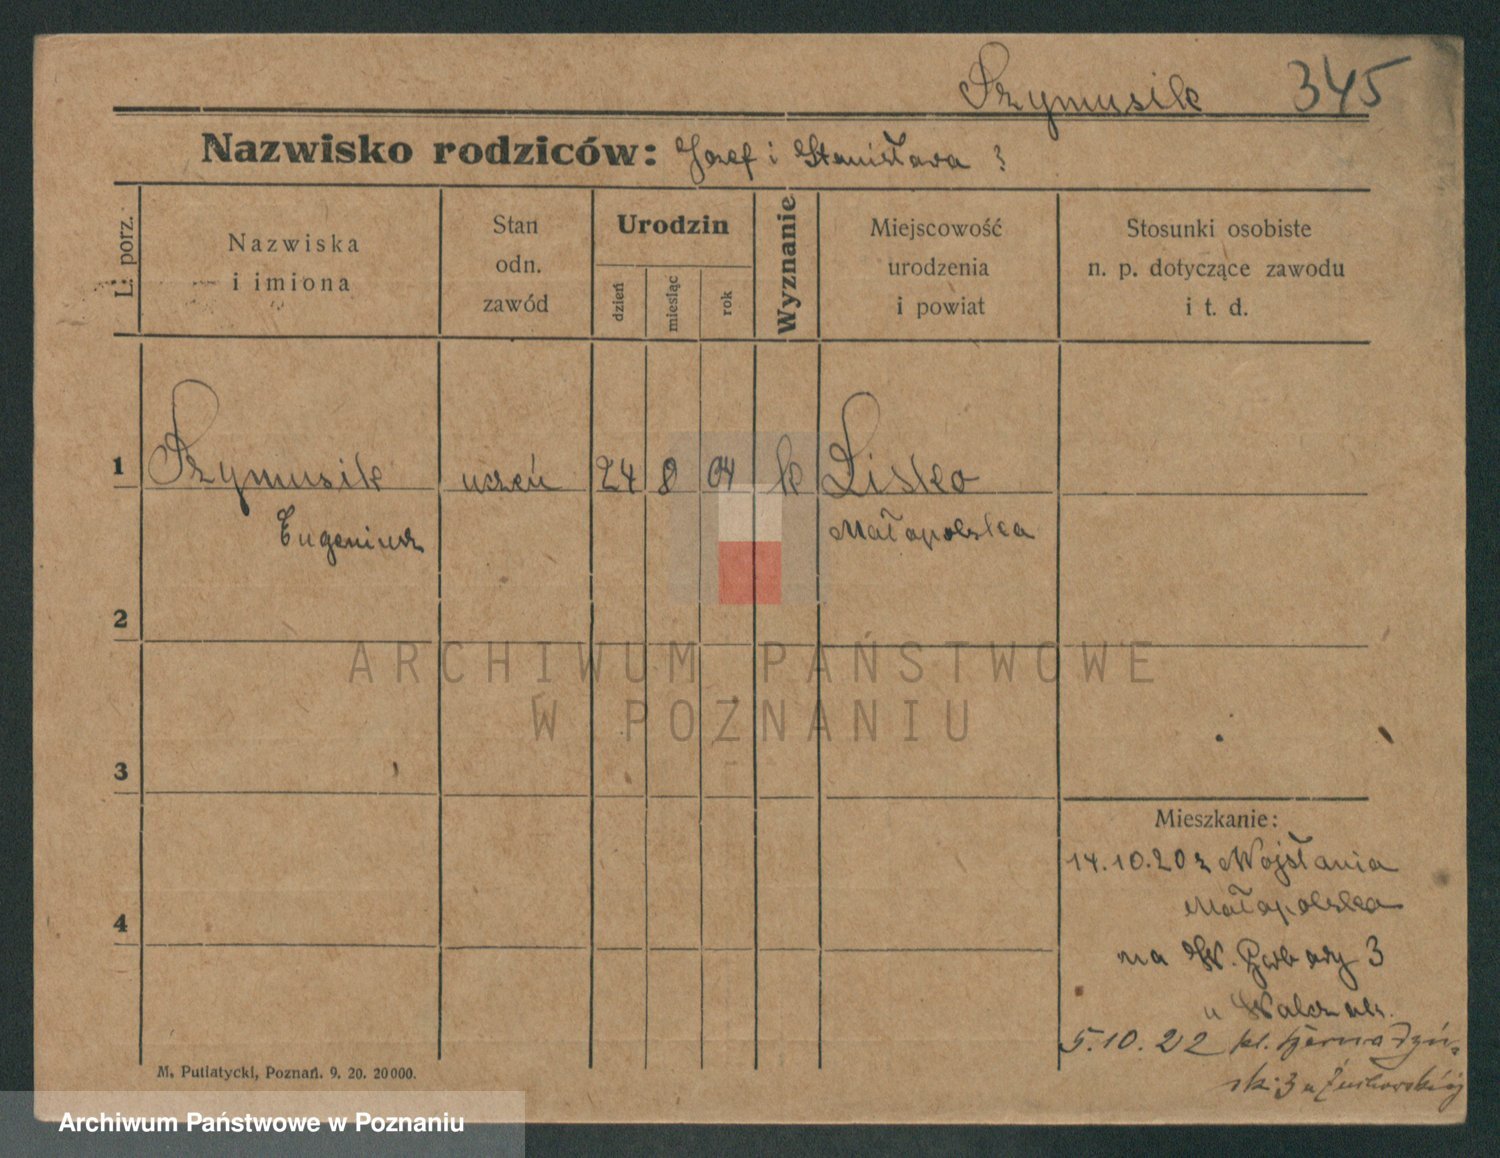 Szymusik 345
Nazwisko rodziców: Józef i Stanisława ?
L. porz.
Nazwiska
i imiona
Stan
odn.
zawód
Urodzin
dzień
miesiąc
rok
Wyznanie
Miejscowość
urodzenia
i powiat
Stosunki osobiste
n. p. dotyczące zawodu
i t. d.
1 Szymusik uczeń 24 8 04 k Lisko
Eugeniusz Małopolska
2
ARCHIWUM PAŃSTWOWE
W POZNANIU
3
Mieszkanie:
14.10.20 z Wojsłania
Małopolska
4
na W. Garbary 3
u
5.10.22 pl. Bernardyń-
sk. 3 u Żuchowskiej
M. Putiatycki, Poznań. 9. 20. 20000.
Archiwum Państwowe w Poznaniu